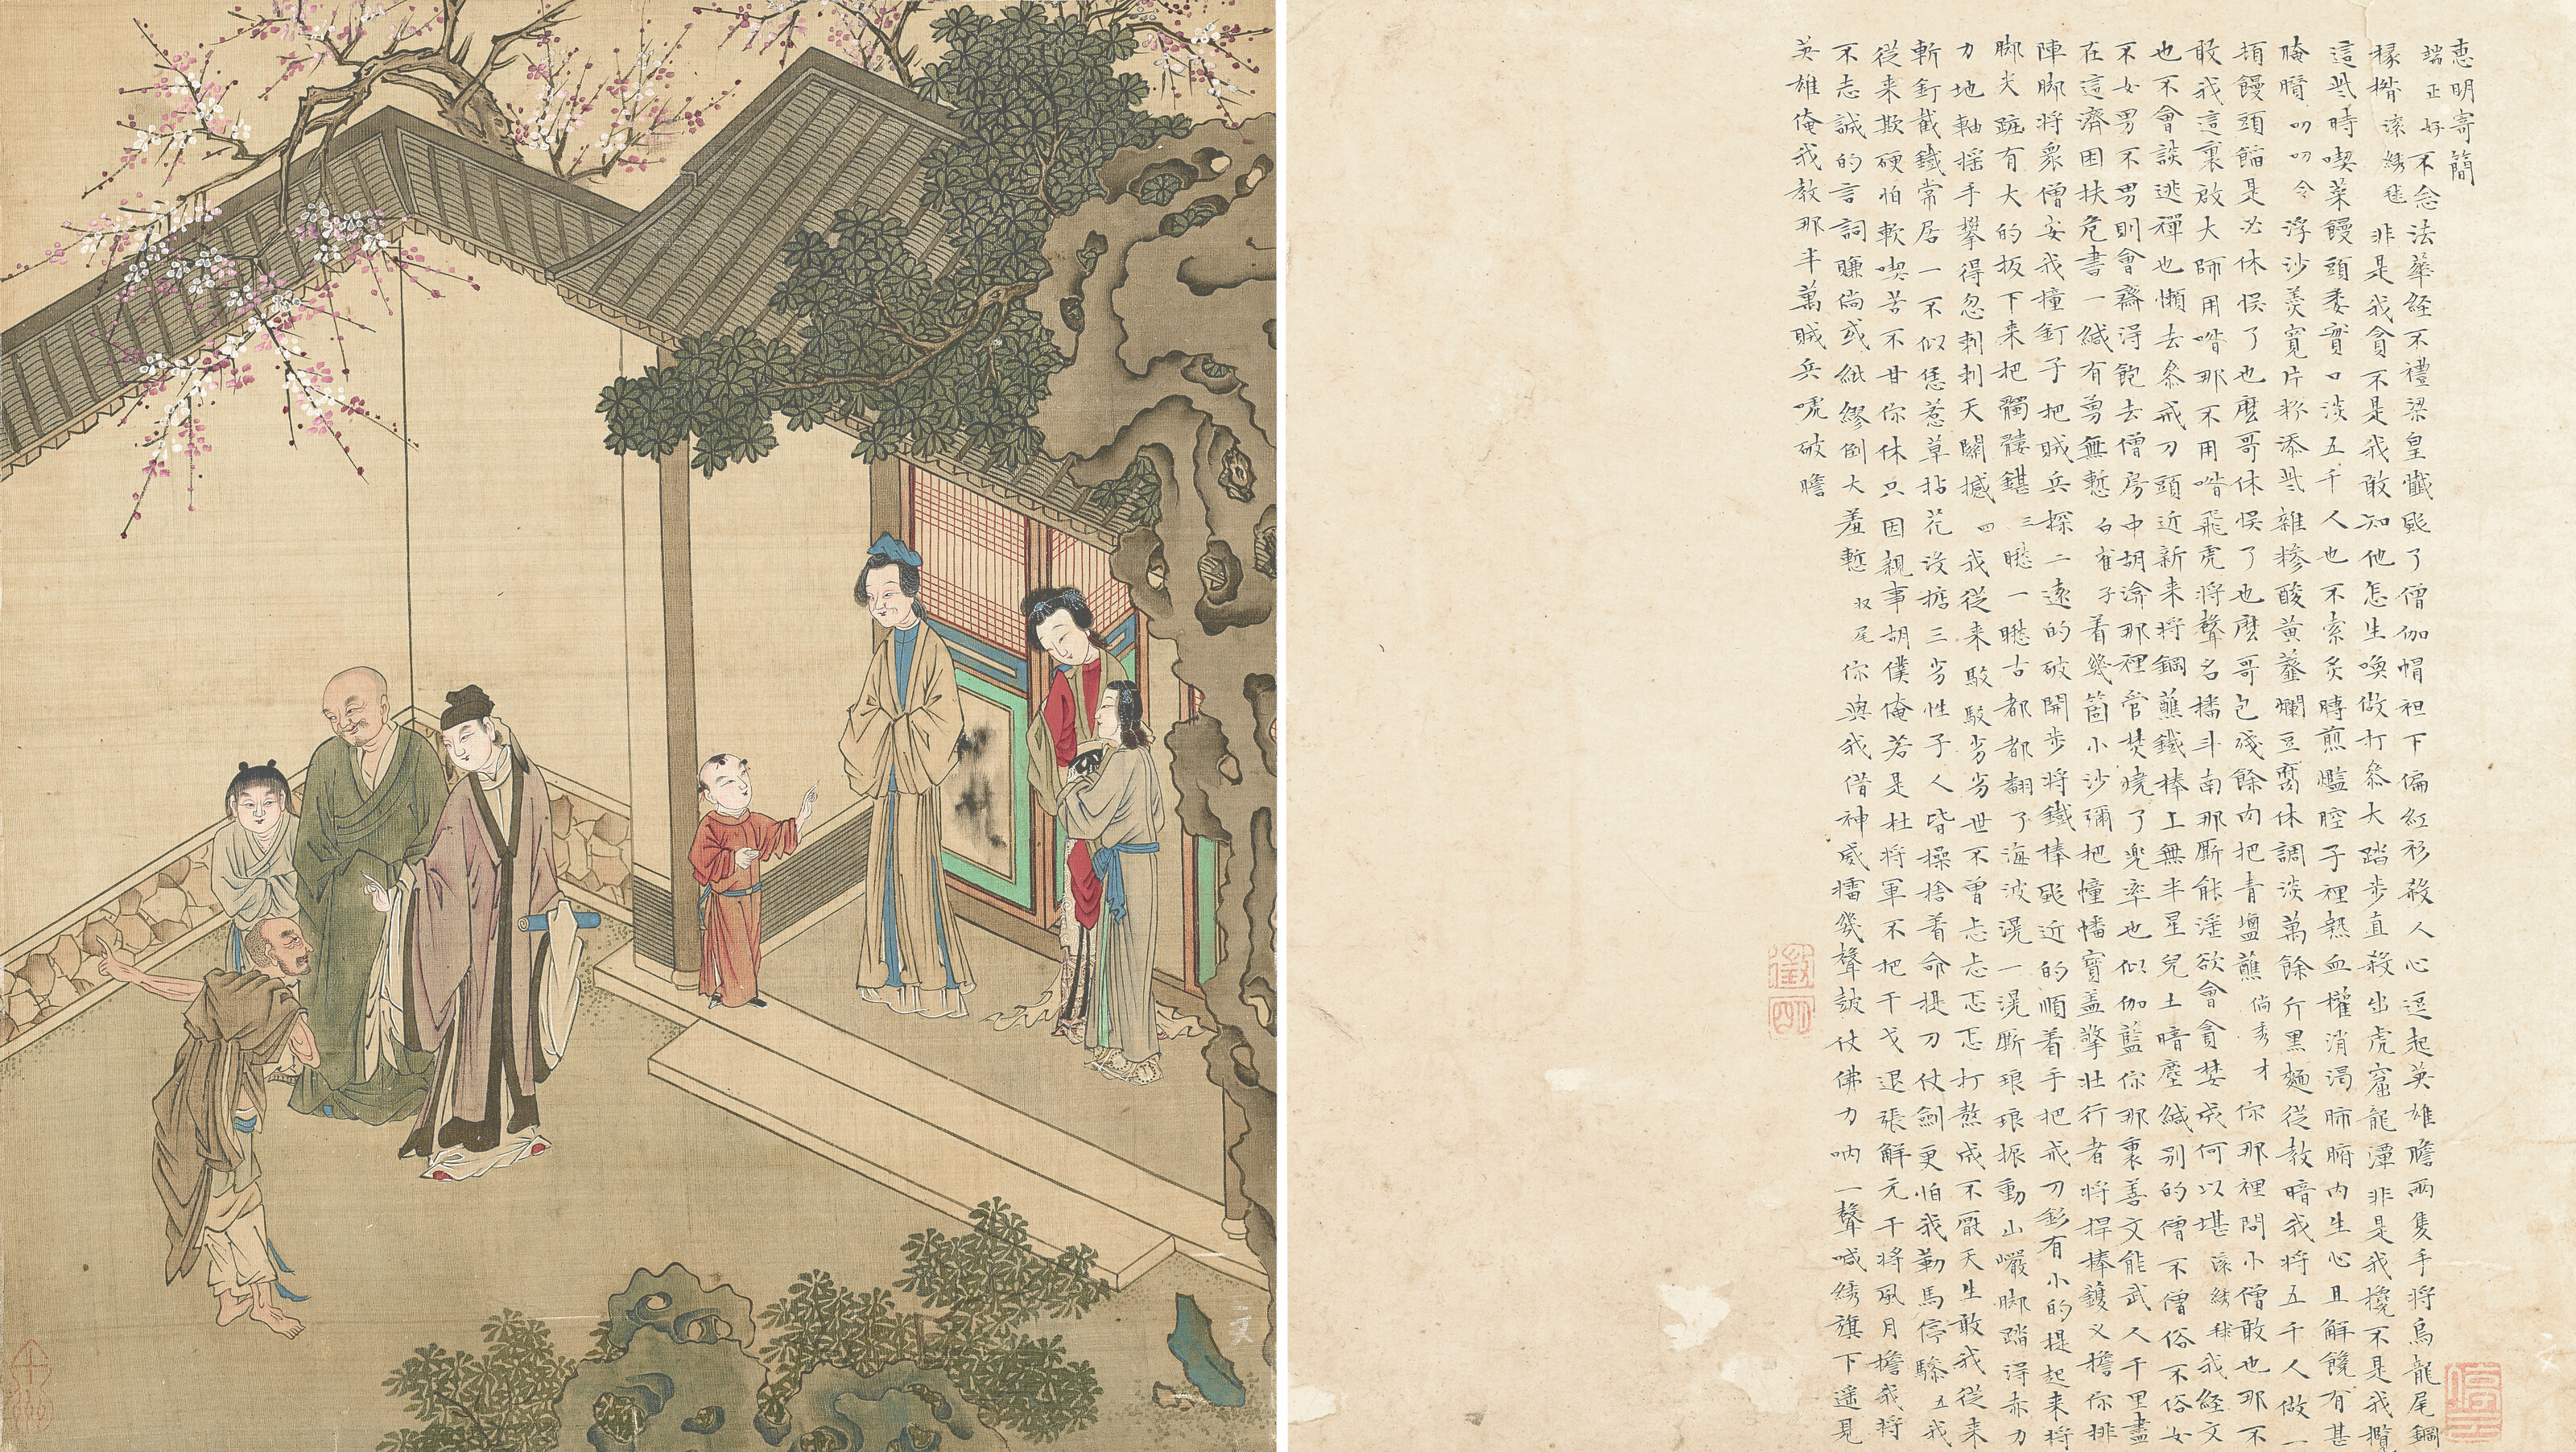 惠明寄簡
端正好不念法華經不禮梁皇懺颩了僧伽帽袒下偏紅衫殺人心逗起英雄膽兩隻手將烏龍尾鋼
椽揝滾綉毬非是我貪不是我敢知他怎生喚做打叅大踏步直殺出虎窟龍潭非是我攙不是我攬
這些時喫菜饅頭委實口淡五千人也不索炙煿煎爁腔子裡熱血權消渴肺腑內生心且解饞有甚
腌臢叨叨令浮沙羹寬片粉添些雜糝酸黃虀爛豆腐休調淡萬餘斤黑麵從教暗我將五千人做一
頓饅頭餡是必休悞了也麽哥休悞了也麽哥包殘餘肉把青塩蘸倘秀才你那裡問小僧敢也那不
敢我這裏啟大師用喒那不用喒飛虎將聲名播斗南那厮能淫欲會貪婪成何以堪滾綉毬我經文
也不會談逃禪也懶去叅戒刀頭近新来將鋼蘸鐵棒上無半星兒土暗塵緘别的僧不僧俗不俗女
不女男不男則會齋得飽去僧房中胡渰那裡管焚燒了兜率也似伽藍你那裏善文能武人千里盡
在這濟困扶危書一緘有勇無慙白雀子着幾箇小沙彌把幢幡寶蓋擎壯行者將捍棒鑊叉擔你排
陣脚將衆僧安我撞釘子把賊兵探二遠的破開步將鐵棒颩近的順着手把戒刀釤有小的提起来將
脚尖䟴有大的扳下来把髑髏鍖三瞅一瞅古都都翻了海波滉一滉厮琅琅振動山巖脚踏得赤力
力地軸摇手攀得忽剌剌天關撼四我從来駁駁劣劣世不曾忐忐忑忑打熬成不厭天生敢我從来
斬釘截鐵常居一不似恁惹草拈花沒掂三劣性子人皆操捨着命提刀仗劍更怕我勒馬停驂五我
從来欺硬怕軟喫苦不甘你休只因親事胡僕俺若是杜將軍不把干戈退張解元干將風月擔我將
不志誠的言詞賺倘或紕繆倒大羞慙收尾你與我借神威擂幾聲皷仗佛力吶一聲喊綉旗下遥見
英雄俺我教那半萬賊兵唬破膽
徵
明
停
雲
十
洲